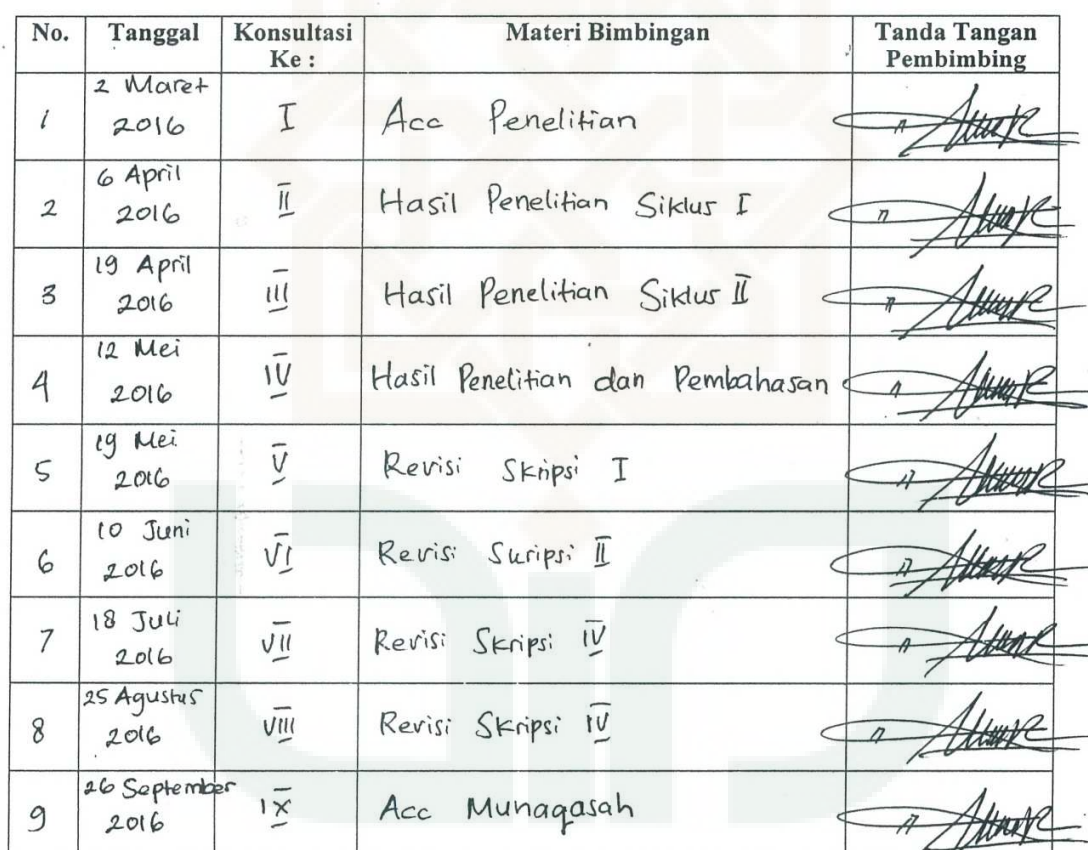 No. Tanggal Konsultasi Ke : Materi Bimbingan Tanda Tangan Pembimbing
1 2 Maret 2016 I Acc Penelitian
2 6 April 2016 II Hasil Penelitian Siklus I
3 19 April 2016 III Hasil Penelitian Siklus II
4 12 Mei 2016 IV Hasil Penelitian dan Pembahasan
5 19 Mei 2016 V Revisi Skripsi I
6 10 Juni 2016 VI Revisi Suripsi II
7 18 Juli 2016 VII Revisi Skripsi IV
8 25 Agustus 2016 VIII Revisi Skripsi IV
9 26 September 2016 IX Acc Munaqasah